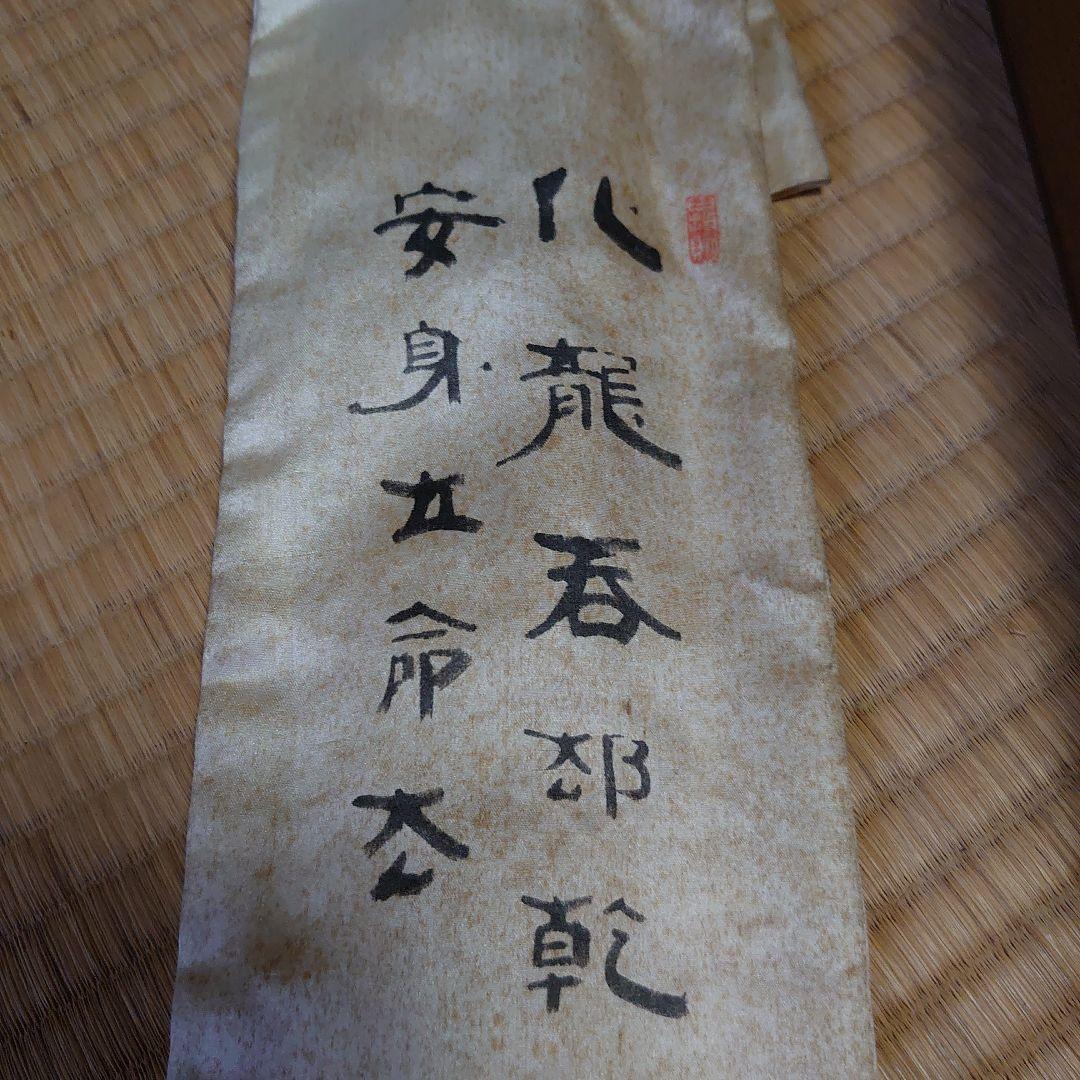 化龍呑却乾
安身立命去